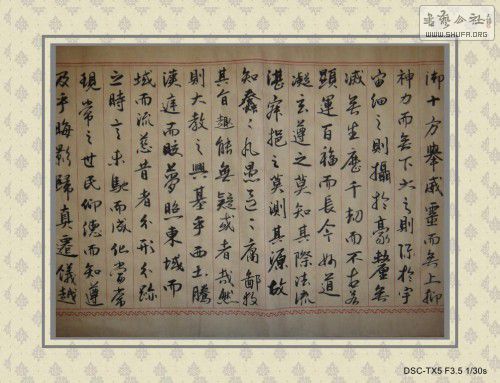 书艺公社
WWW.SHUFA.ORG
御十方舉威靈而無上抑
神力而無下大之則弥於宇
宙細之則攝於豪釐無
滅無生歷千劫而不古若
顕運百福而長今妙道
凝玄遵之莫知其際法流
湛寂挹之莫測其源故
知蠢々凡愚區々庸鄙投
其旨趣能無疑或者哉然
則大教之興基乎西土騰
漢庭而皎夢照東域而
域而流慈昔者分形分跡
之時言未馳而成化當常
現常之世民仰德而知遵
及乎晦影歸真遷儀越
DSC-TX5 F3.5 1/30s